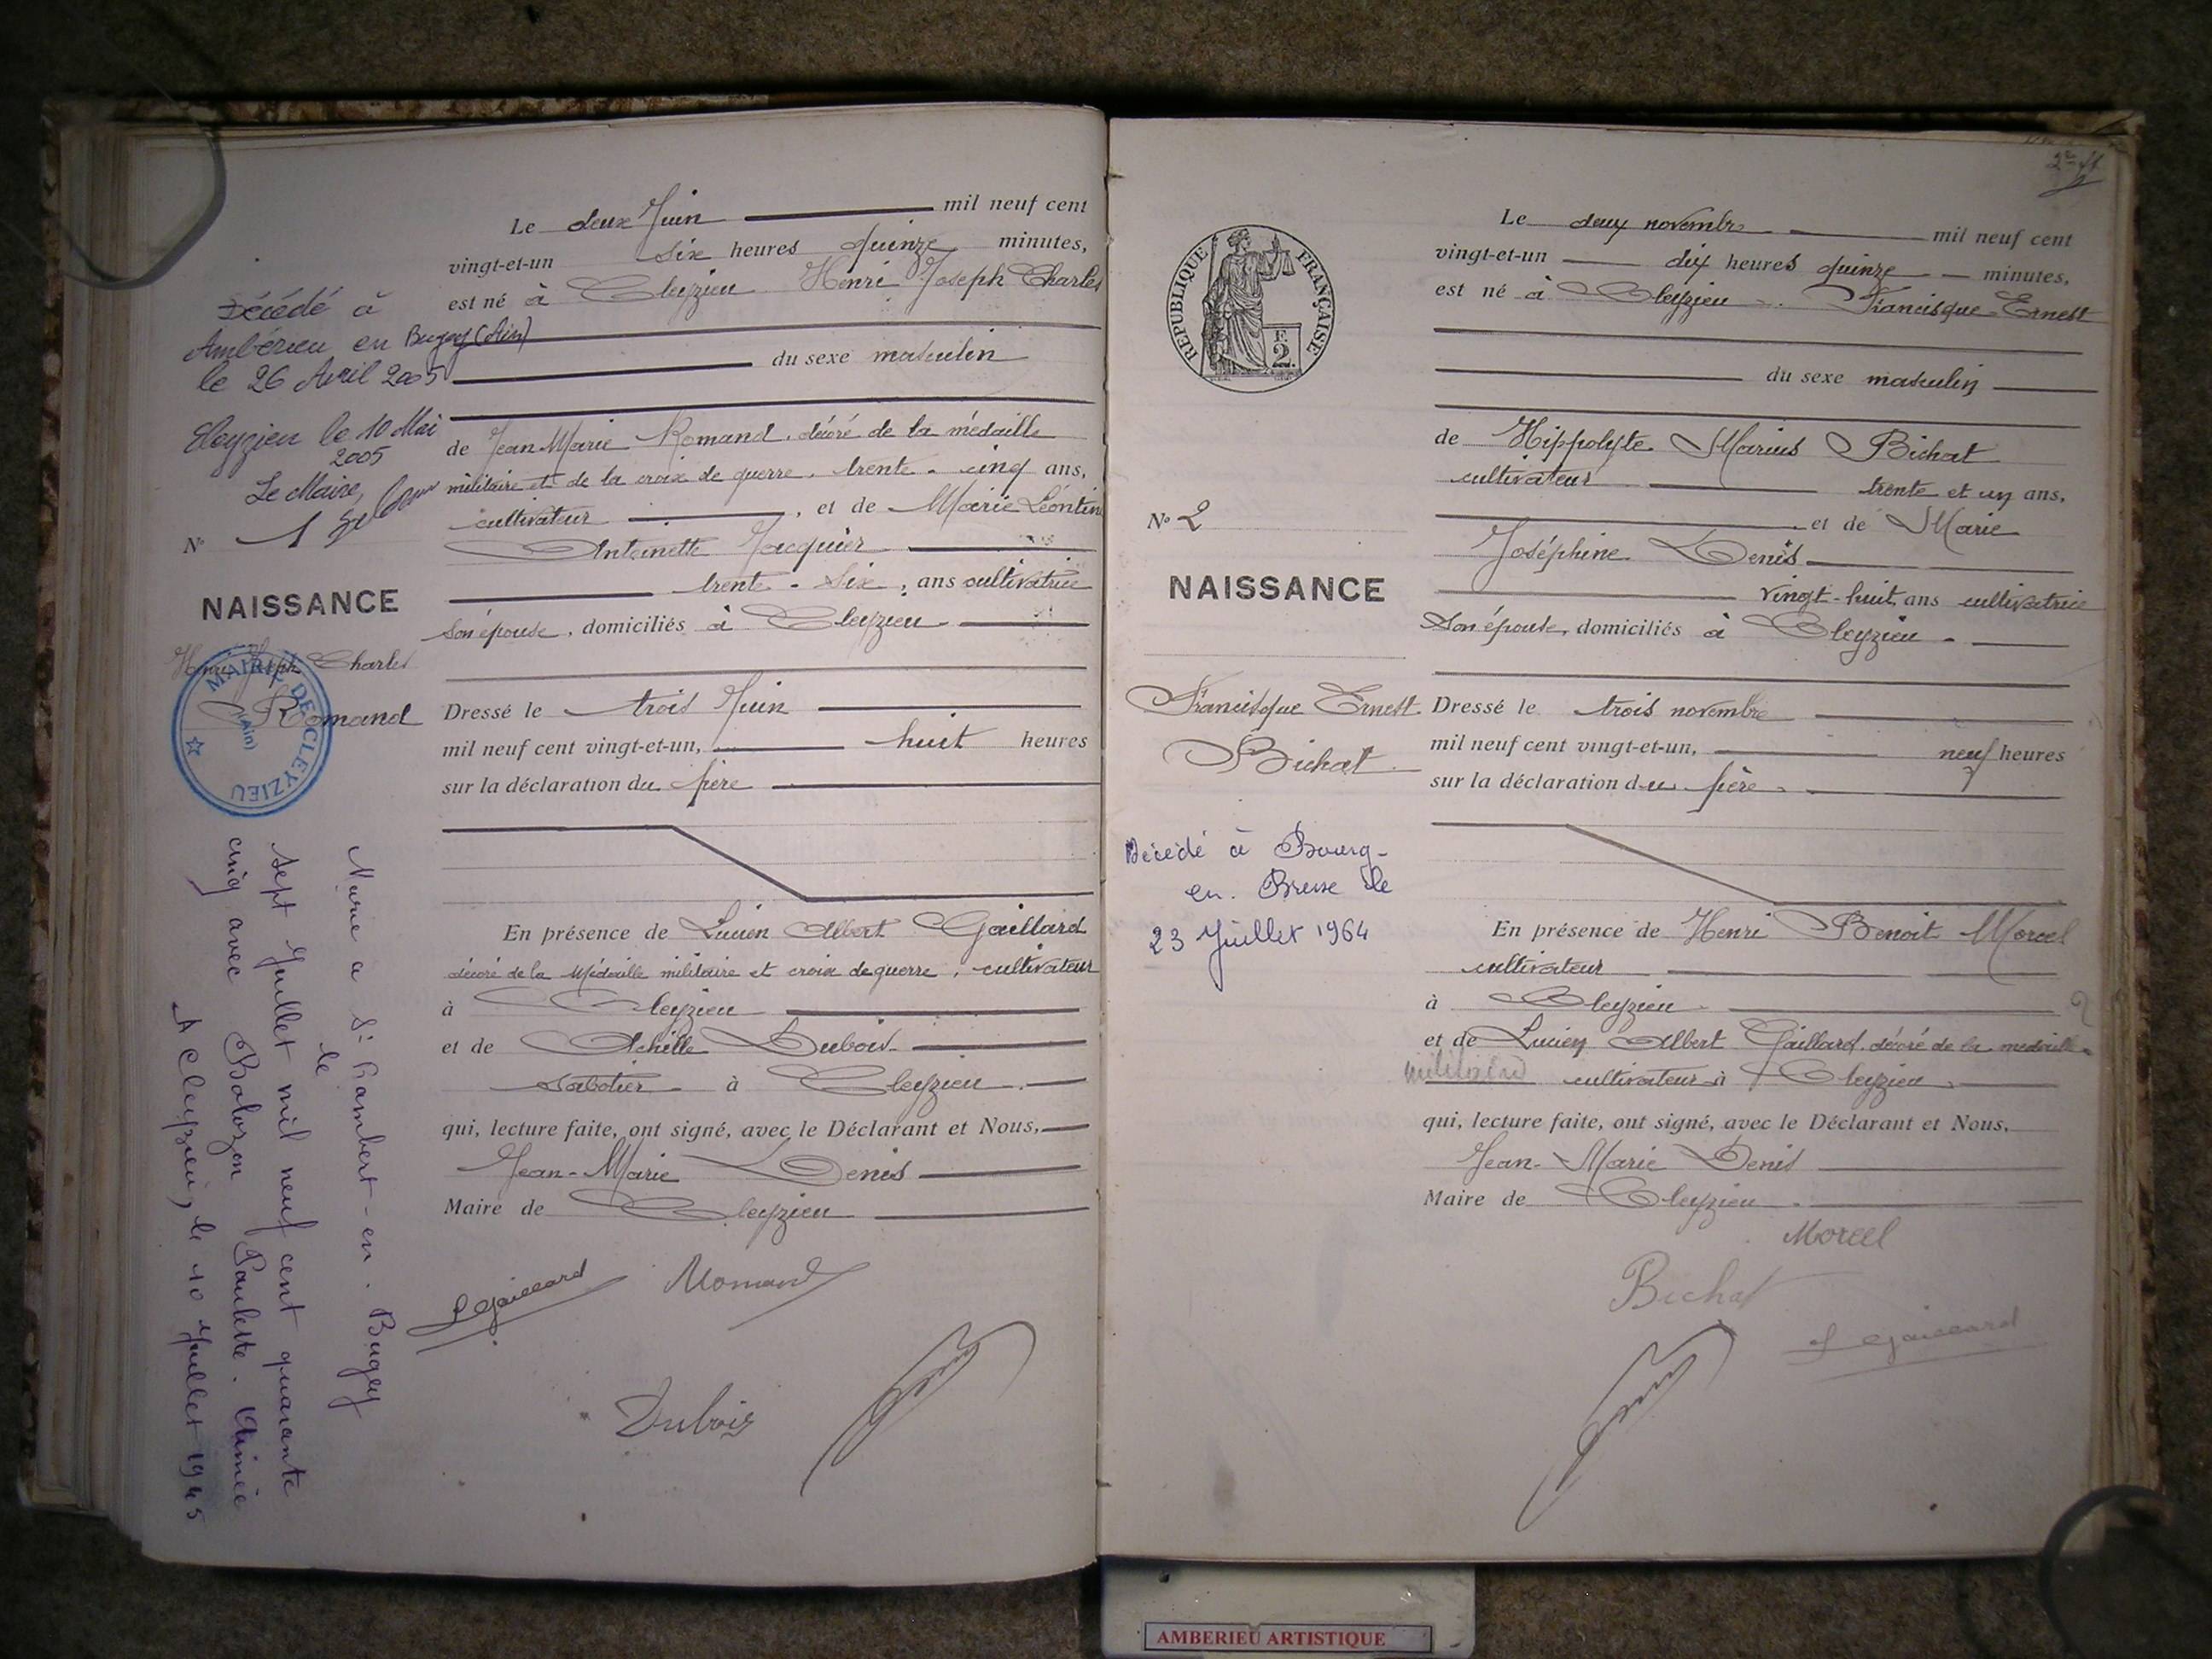 Le deux Juin mil neuf cent
vingt-et-un six heures quinze minutes,
est né à Cleyzieu Henri Joseph Charles
du sexe masculin
de Jean Marie Romand, décoré de la médaille
militaire et de la croix de guerre, trente-cinq ans,
cultivateur, et de Marie Léontine
Antoinette Jacquier
trente-six, ans cultivatrice
son épouse, domiciliés à Cleyzieu
Dressé le trois Juin
mil neuf cent vingt-et-un, huit heures
sur la déclaration du père
En présence de Lucien Albert Gaillard
décoré de la Médaille militaire et croix de guerre, cultivateur
à Cleyzieu
et de Achille Dubois
sabotier à Cleyzieu.
qui, lecture faite, ont signé, avec le Déclarant et Nous,
Jean-Marie Denis
Maire de Cleyzieu
L Gaillard Romand
Dubois
Décédé à
Ambérieu en Bugey (Ain)
le 26 Avril 2005
Cleyzieu le 10 Mai
2005
Le Maire,
N° 1
NAISSANCE
Henri Joseph Charles
Romand
MAIRIE DE CLEYZIEU
(Ain)
Marié à St Rambert-en-Bugey
le
sept Juillet mil neuf cent quarante
cinq avec Balozon Paulette Aimée
A Cleyzieu, le 10 Juillet 1945
2e
REPUBLIQUE FRANÇAISE
F.
2.
Le deux novembre mil neuf cent
vingt-et-un dix heures quinze minutes,
est né à Cleyzieu Francisque Ernest
du sexe masculin
de Hippolyte Marius Bichat
cultivateur trente et un ans,
et de Marie
Joséphine Denis
vingt-huit, ans cultivatrice
Son épouse, domiciliés à Cleyzieu
Dressé le trois novembre
mil neuf cent vingt-et-un, neuf heures
sur la déclaration du père
En présence de Henri Benoit Morcel
cultivateur
à Cleyzieu
et de Lucien Albert Gaillard, décoré de la médaille
militaire cultivateur à Cleyzieu
qui, lecture faite, ont signé, avec le Déclarant et Nous,
Jean-Marie Denis
Maire de Cleyzieu
Morcel
Bichat
L Gaillard
N° 2
NAISSANCE
Francisque Ernest
Bichat
Décédé à Bourg-
en-Bresse le
23 Juillet 1964
AMBERIEU ARTISTIQUE